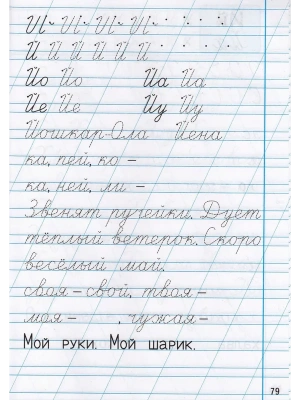 Й Й Й Й Й Й
Йо Йо Йа Йа
Йе Йе Йу Йу
Йошкар-Ола Йена
ка, пей, ко –
ка, ней, ли –
Звенят ручейки. Дует
тёплый ветерок. Скоро
весёлый май.
своя – свой, твоя –
моя – , чужая –
Мой руки. Мой шарик.
79